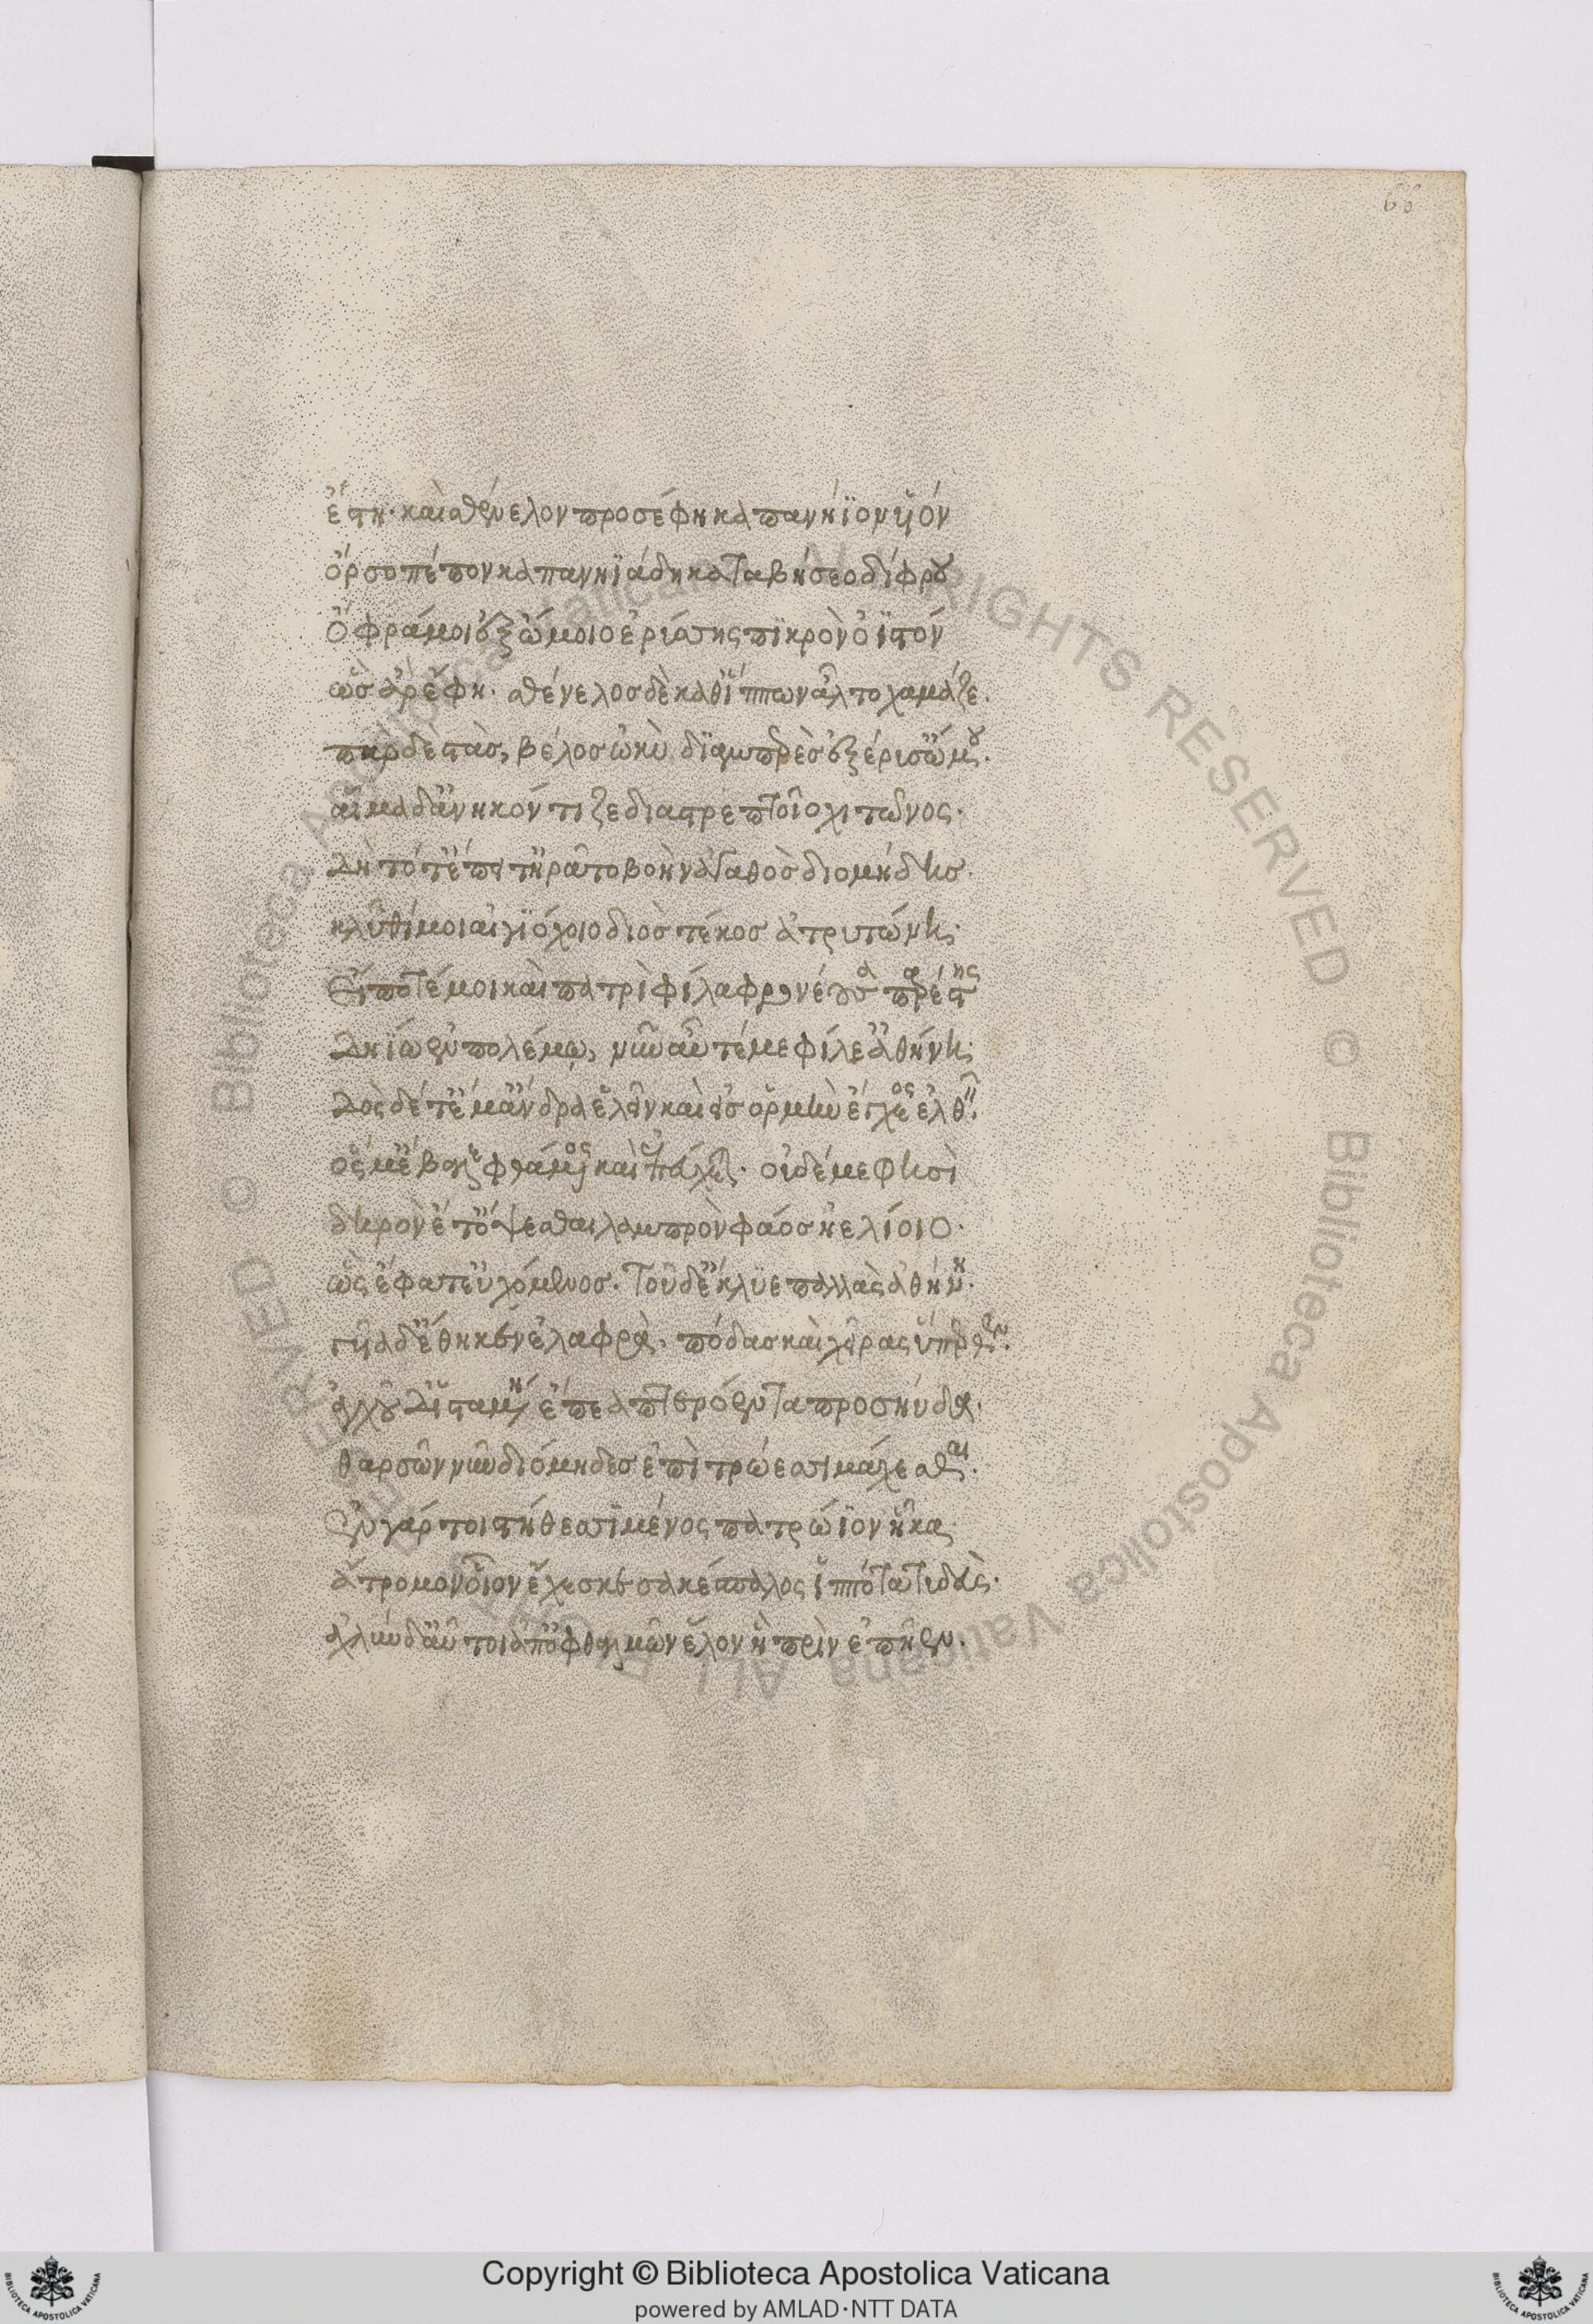 68
ἔστη· καὶ σθένελον προσέφη καπανήϊον υἱόν
ὄρσο πέπον καπανηϊάδη καταβήσεο δίφρου
ὄφρά μοι ἐξ ὤμοιο ἐρύσσῃς πικρὸν ὀϊστόν
ὣς ἄρ ἔφη· σθένελος δὲ καθ ἵππων ἆλτο χαμάζε.
παρ δὲ στὰς, βέλος ὠκὺ διαμπερὲς ἐξέρυσ ὤμου.
αἷμα δ ἀνηκόντιζε διὰ στρεπτοῖο χιτῶνος.
δὴ τότ ἔπειτ ἠρᾶτο βοὴν ἀγαθὸς διομήδης.
κλῦθί μοι αἰγιόχοιο διὸς τέκος ἀτρυτώνη.
εἴ ποτέ μοι καὶ πατρὶ φίλα φρονέουσα παρέστης
δηΐω ἐν πολέμῳ, νῦν αὖτ ἐμὲ φίλε ἀθήνη.
δὸς δέ τέ μ ἄνδρα ἑλεῖν καὶ ἐς ὁρμὴν ἔγχεος ἐλθεῖν.
ὅς μ ἔβαλε φθάμενος καὶ ἐπεύχεται· οὐδέ με φησὶ
δηρὸν ἔτ ὄψεσθαι λαμπρὸν φάος ἠελίοιο.
ὣς ἔφατ εὐχόμενος. τοῦ δ ἔκλυε παλλὰς ἀθήνη.
γυῖα δ ἔθηκεν ἐλαφρὰ. πόδας καὶ χεῖρας ὕπερθεν.
ἀγχοῦ δ ἱσταμένη ἔπεα πτερόεντα προσηύδα.
θαρσῶν νῦν διόμηδες ἐπὶ τρώεσσι μάχεσθαι.
ἐν γάρ τοι στήθεσσι μένος πατρώϊον ἧκα
ἄτρομον οἷον ἔχεσκε σακέσπαλος ἱππότα τυδεὺς.
ἀχλὺν δ αὖ τοι ἀπ ὀφθαλμῶν ἕλον ἣ πρὶν ἐπῆεν.
Copyright © Biblioteca Apostolica Vaticana
powered by AMLAD·NTT DATA